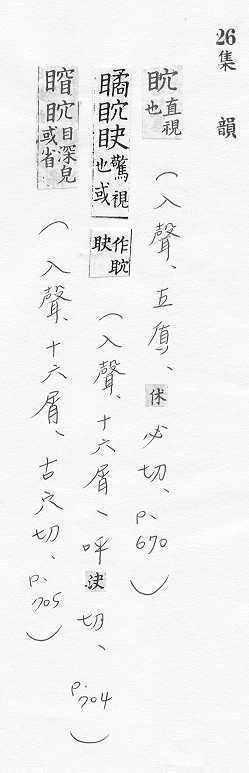 26集韻
䀢直視也（入聲、五質、休必切、p.670）
瞲䀢眣驚視也或作眣䀢（入聲、十六屑、呼決切、p.704）
䀢目深皃或省（入聲、十六屑、古穴切、p.705）